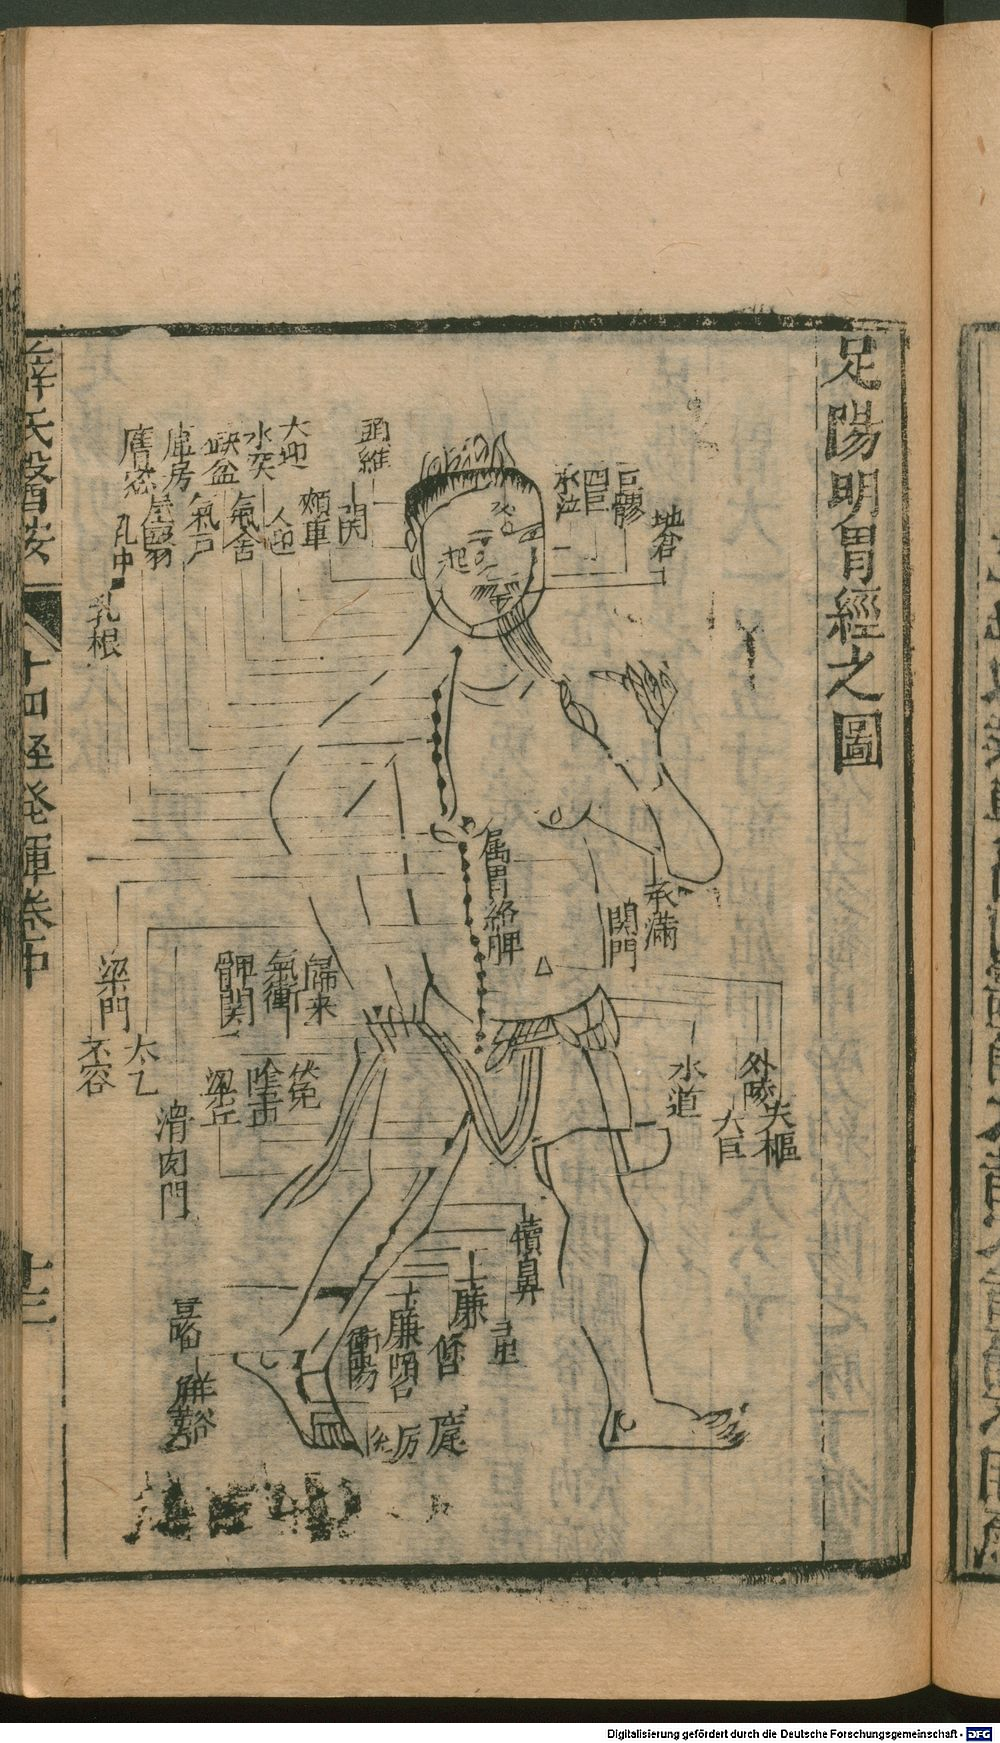 足陽明胃經之圖
地倉
巨髎
四白
承泣
頭維
下関
頰車
大迎
人迎
水突
氣舍
缺盆
氣戶
庫房
屋翳
膺窓
乳中
乳根
起
属胃絡脾
承滿
関門
外陵
天樞
大巨
水道
歸来
氣衝
髀関
梁門
不容
太乙
滑肉門
伏兔
陰市
梁丘
犢鼻
上廉
下廉
條
豊隆
解谿
衝陽
陷谷
厉兊
薛氏醫按
十四経發揮卷中
十三
Digitalisierung gefördert durch die Deutsche Forschungsgemeinschaft - DFG